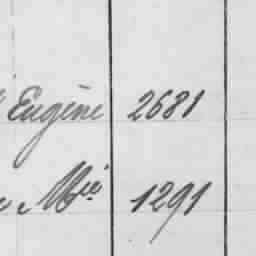 Eugène 2681
Mie 1291